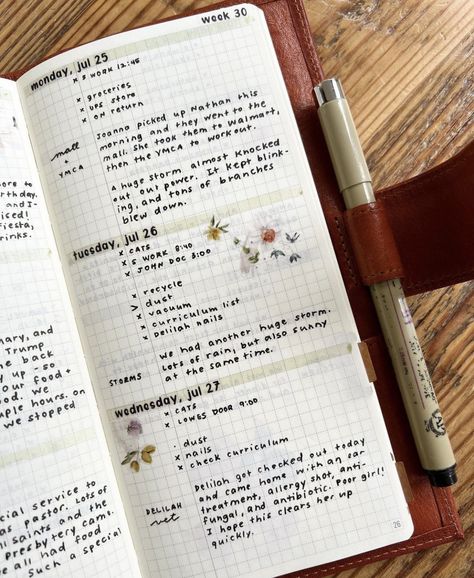 Week 30
monday, jul 25
x S WORK 12:45
x groceries
x UPS store
x ON return
mall
+
YMCA
Joanna picked up Nathan this
morning and they went to the
mall. She took them to Walmart,
then the YMCA to work out.
A huge storm almost knocked
out our power. It kept blink-
ing, and tons of branches
blew down.
tuesday, jul 26
x CATS
x S WORK 8:40
x JOHN DOC 3:00
x recycle
> dust
x vacuum
x curriculum list
x delilah nails
STORMS
We had another huge storm.
Lots of rain, but also sunny
at the same time.
wednesday, jul 27
x CATS
x LOWES DOOR 9:00
. dust
x nails
x check curriculum
DELILAH
vet
Delilah got checked out today
and came home with an ear
treatment, allergy shot, anti-
fungal, and antibiotic. Poor girl!
I hope this clears her up
quickly.
26
ore to
rthday.
and I-
iced!
fiesta,
rinks.
nary, and
Trump
me back
y up - so
our food +
. we
uple hours. on
we stopped
cial service to
as pastor. Lots of
ni saints and the
presbytery came.
e all had food
such a special